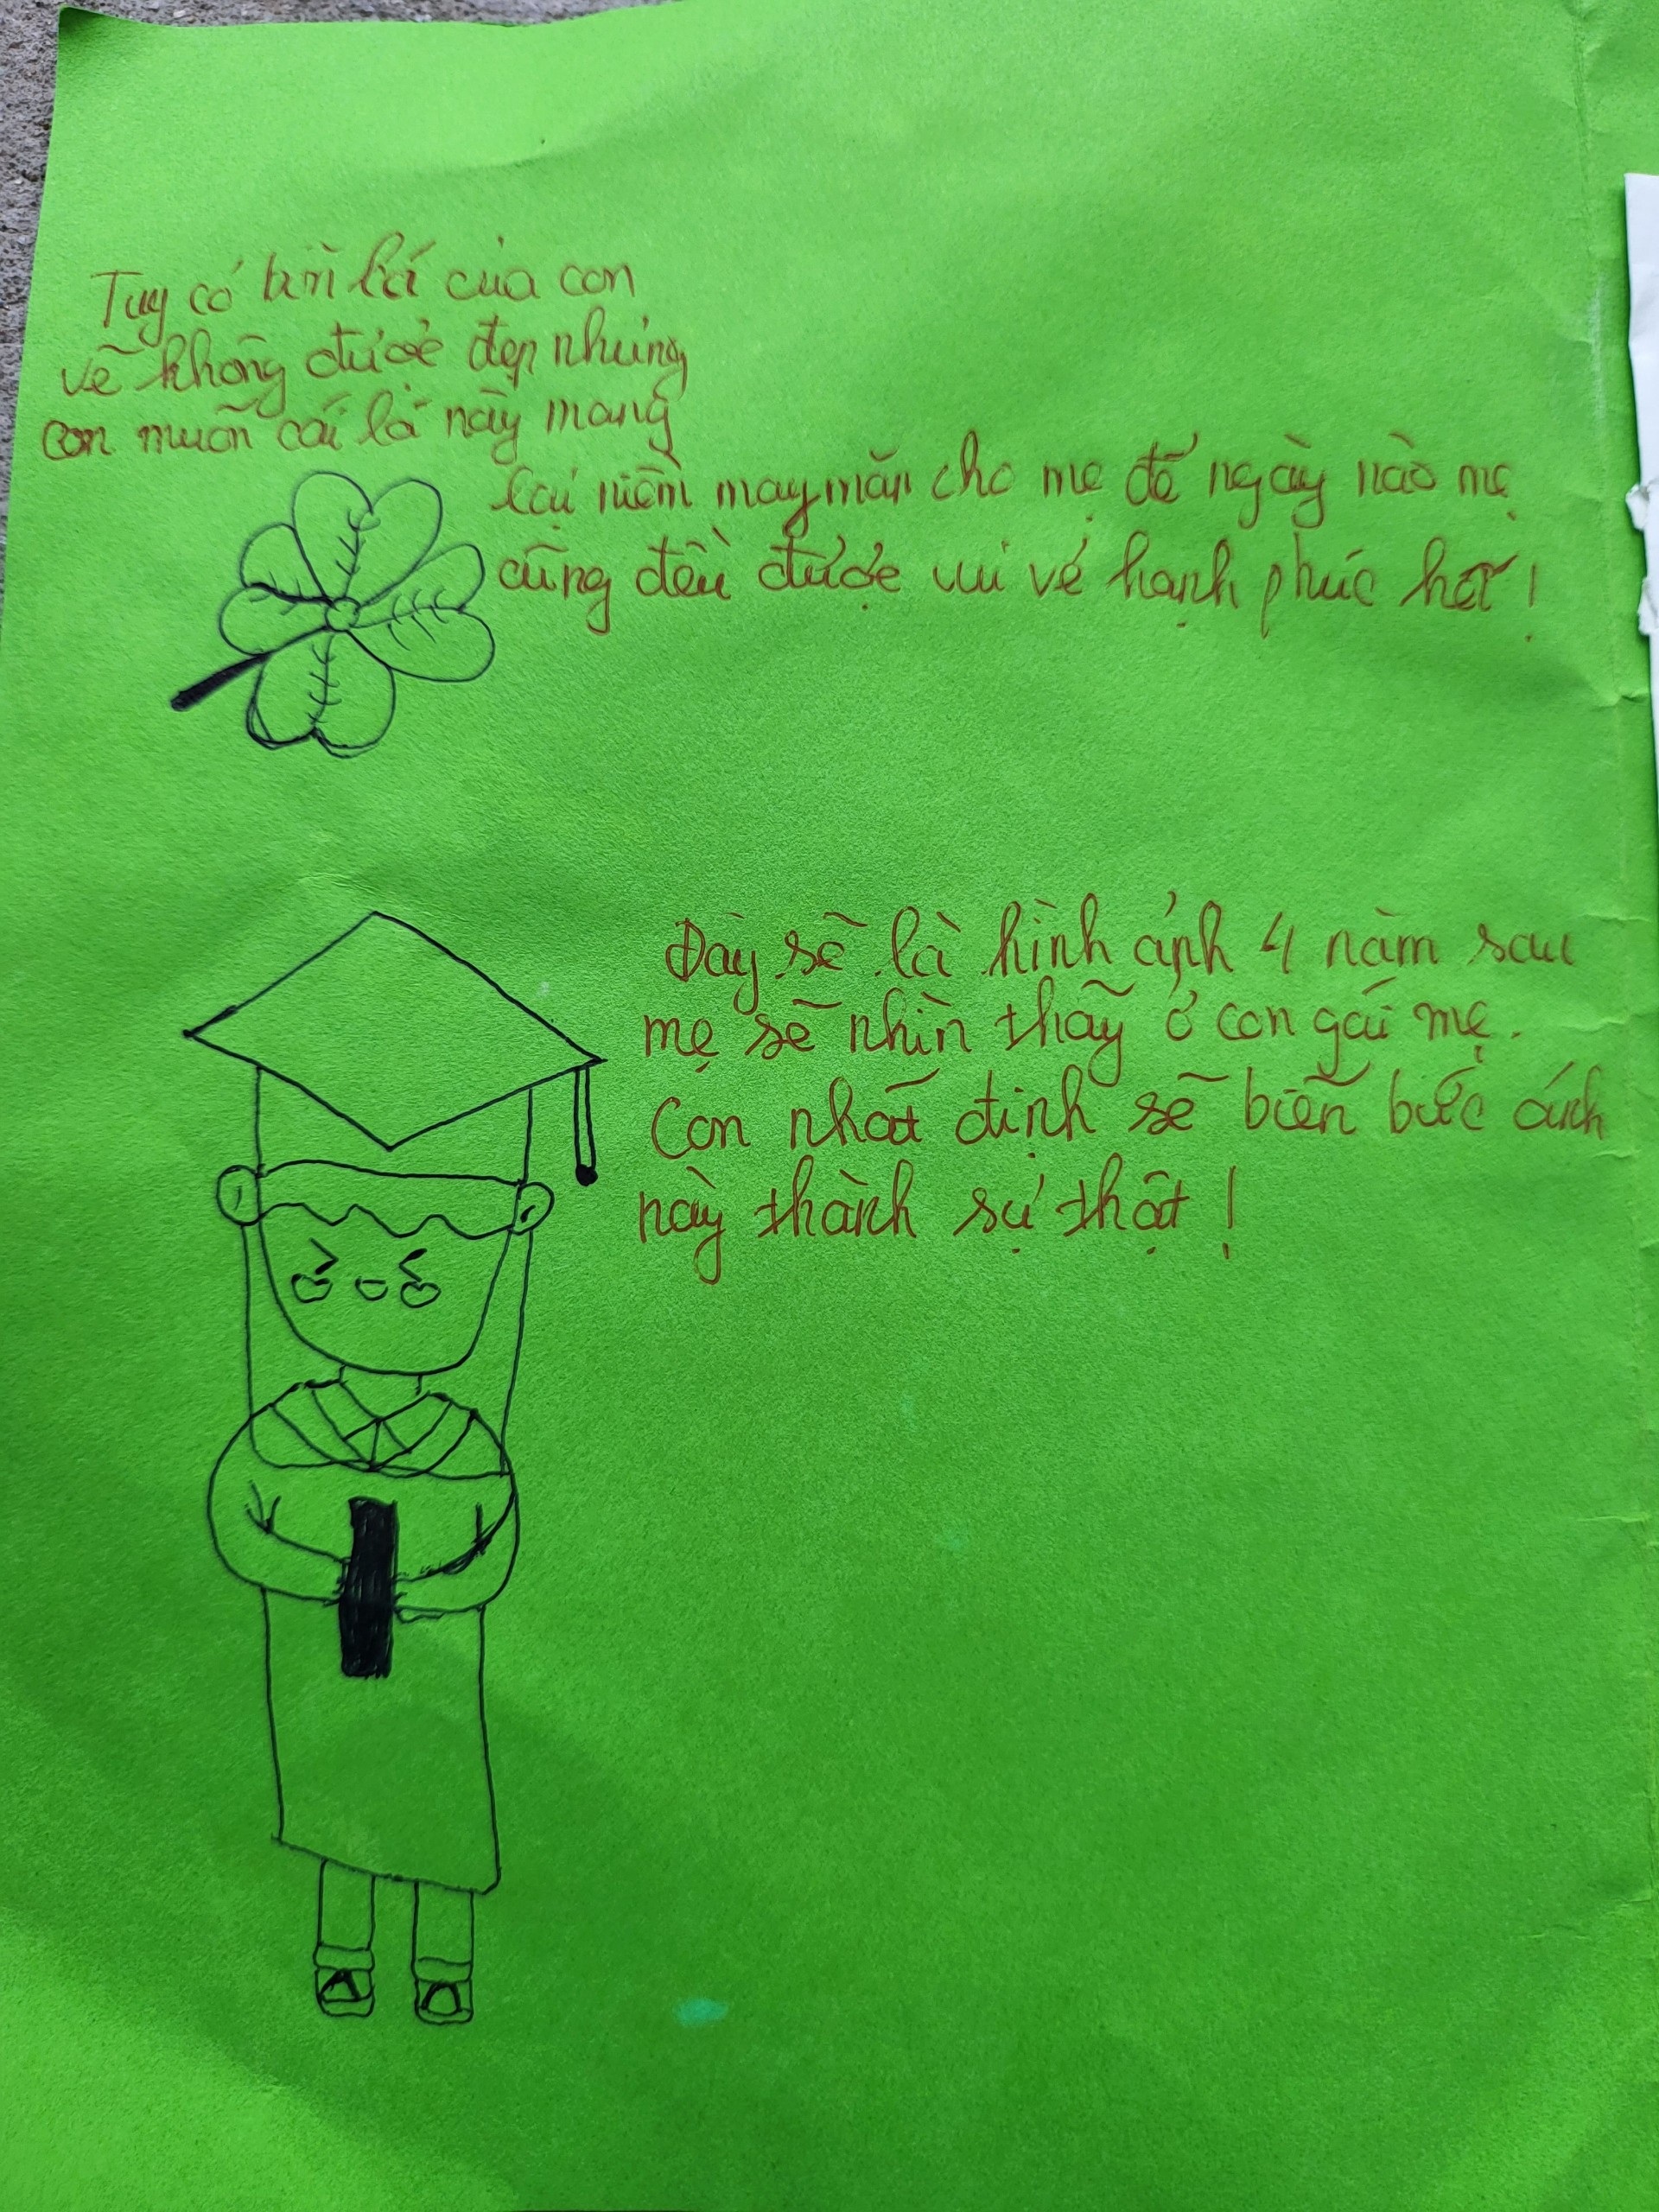 Tuy cỏ bốn lá của con
vẽ không được đẹp nhưng
con muốn cái lá này mang
lại niềm may mắn cho mẹ để ngày nào mẹ
cũng đều được vui vẻ hạnh phúc hết!
Đây sẽ là hình ảnh 4 năm sau
mẹ sẽ nhìn thấy ở con gái mẹ.
Con nhất định sẽ biến bức ảnh
này thành sự thật!